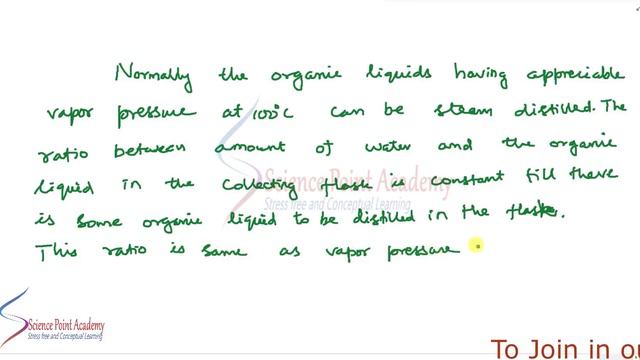 Normally the organic liquids having appreciable
vapor pressure at 100°C can be steam distilled. The
ratio between amount of water and the organic
liquid in the collecting flask is constant till there
is some organic liquid to be distilled in the flask.
This ratio is same as vapor pressure
Science Point Academy
Stress free and Conceptual Learning
Science Point Academy
Stress free and Conceptual Learning
To Join in ou